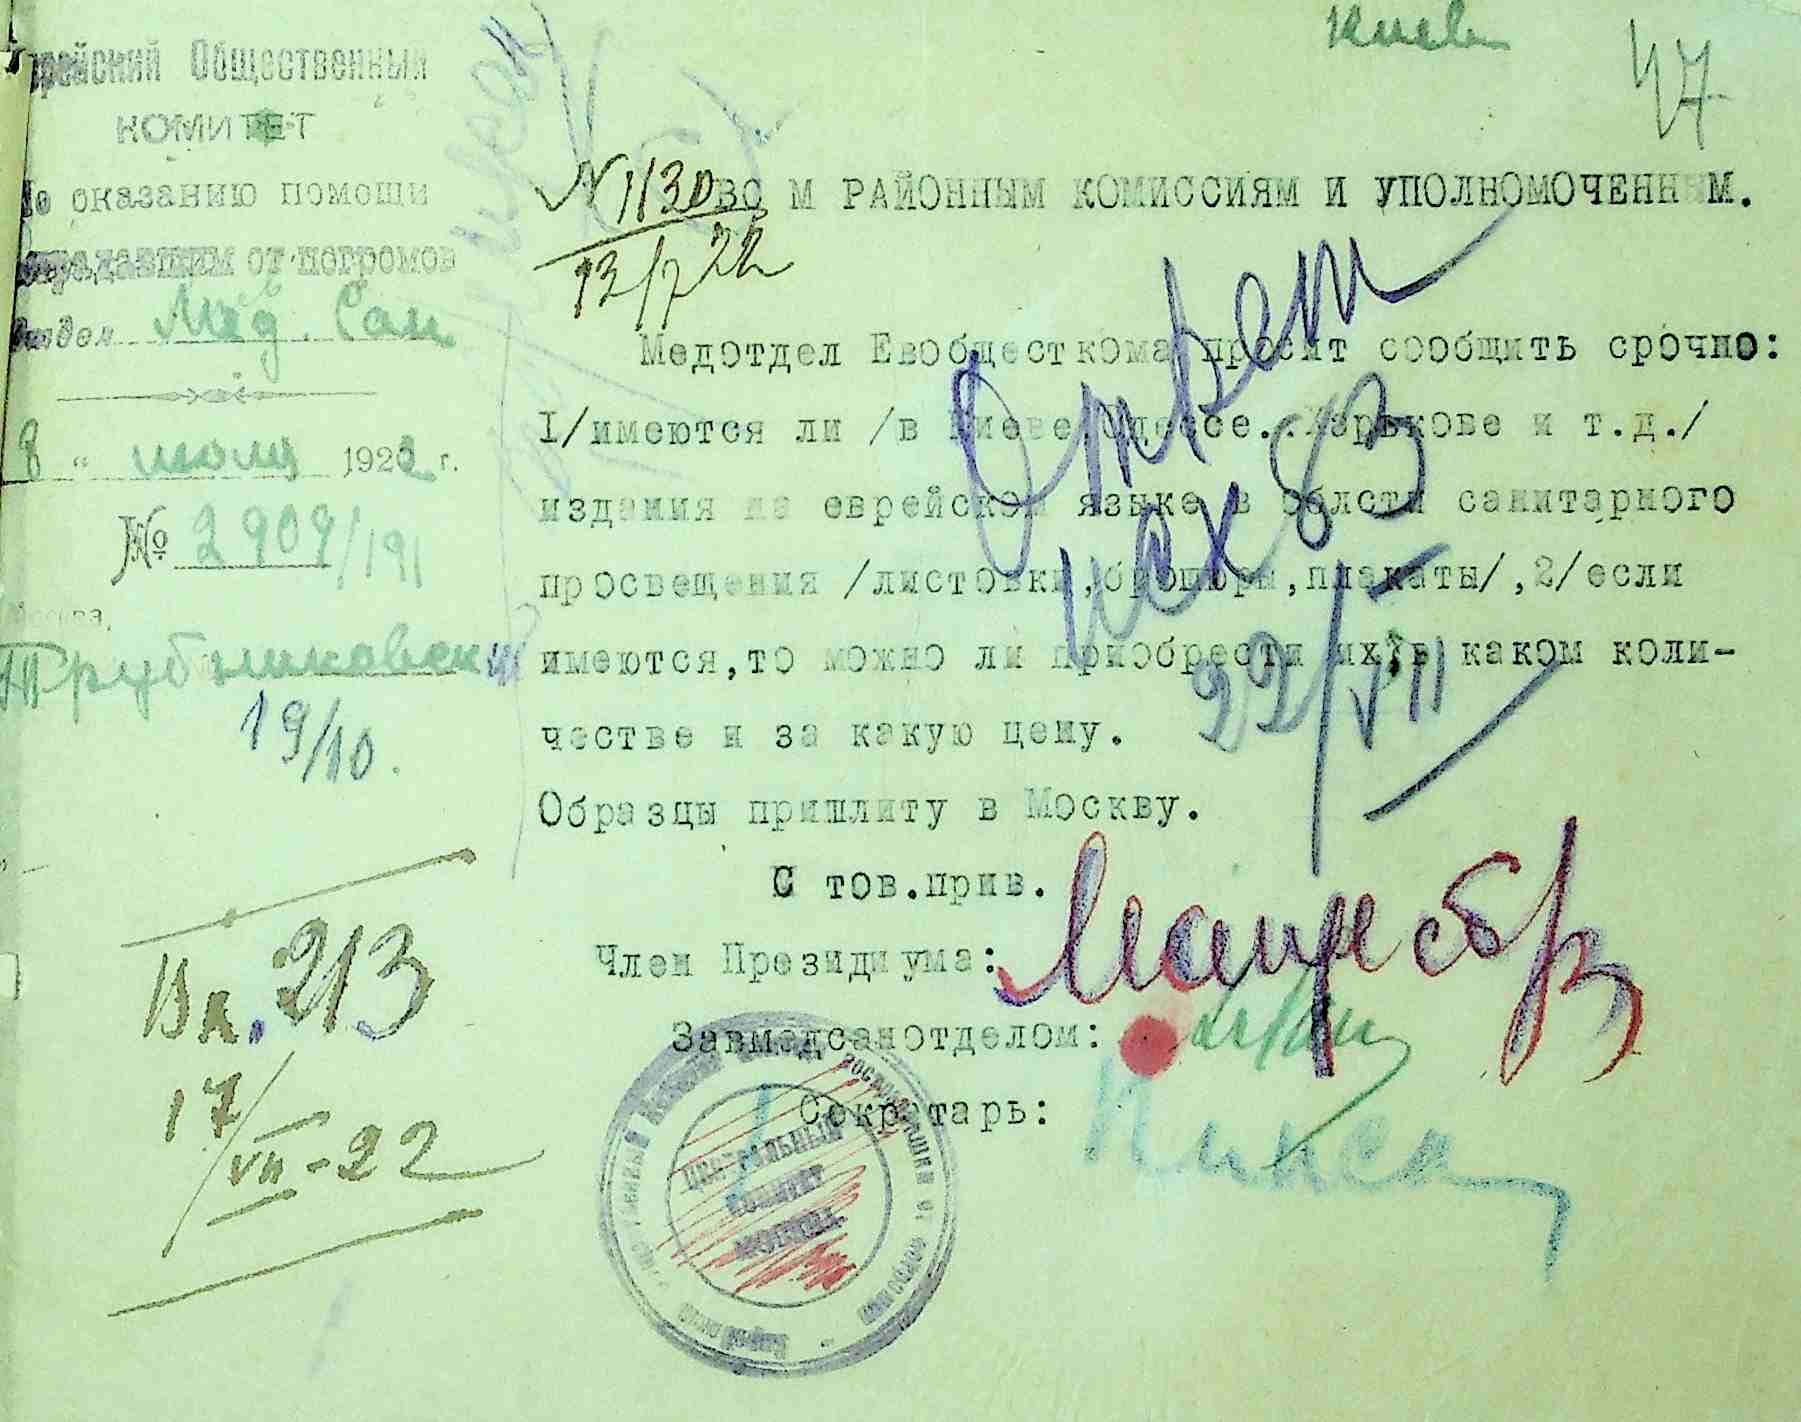 Киев
47
Еврейский Общественный
КОМИТЕТ
По оказанию помощи
пострадавшим от погромов
Отдел Мед. Сан
8 " июля 1922 г.
№ 2909/191
Москва,
Трубниковский
19/10.
№ 1130
13/7 22
ВСЕМ РАЙОННЫМ КОМИССИЯМ И УПОЛНОМОЧЕННЫМ.
Медотдел Евобщесткома просит сообщить срочно:
I/имеются ли /в Киеве, Одессе..Харькове и т.д./
издания на еврейском языке в облсти санитарного
просвещения /листовки,брошюры,плакаты/,2/если
имеются,то можно ли приобрести их, в каком коли-
честве и за какую цену.
Образцы пришлиту в Москву.
С тов.прив.
Член Президиума:
Завмедсанотделом:
Секратарь:
Ответ
исх 83
22/VII
Вх. 213
17/VII-22
ЦЕНТРАЛЬНЫЙ
КОМИТЕТ
МОСКВА